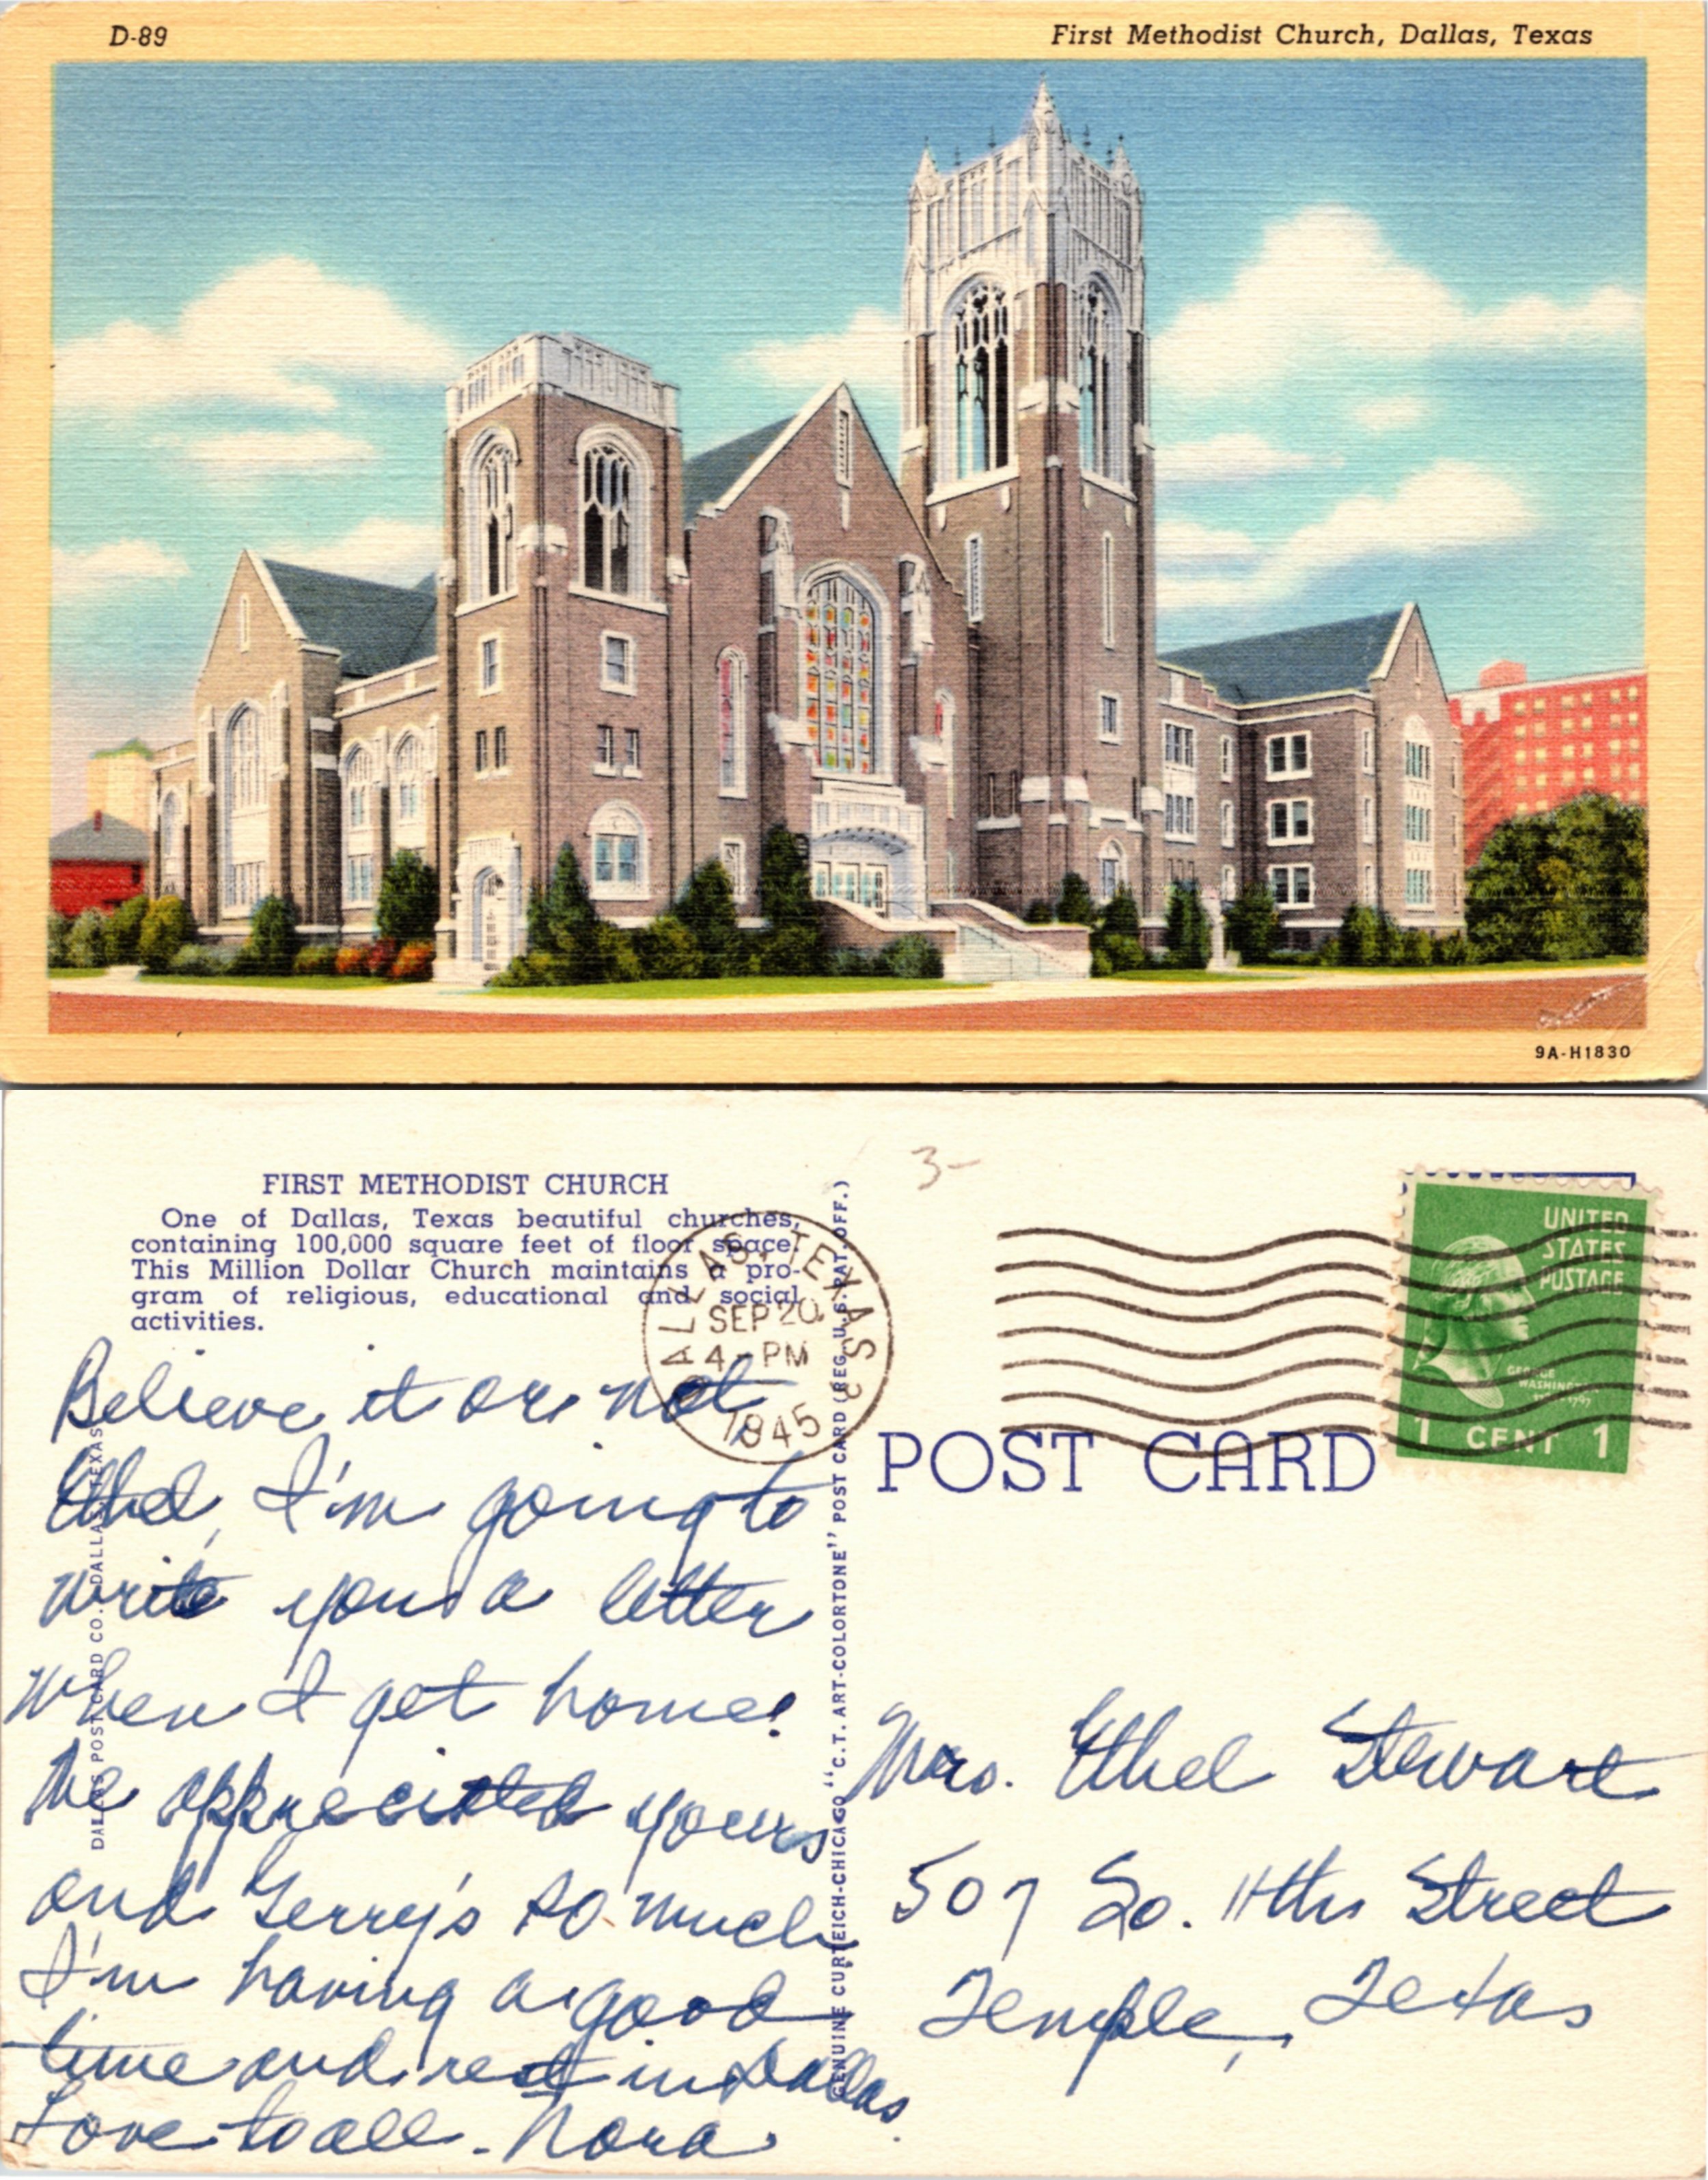 D-89
First Methodist Church, Dallas, Texas
9A-H1830
FIRST METHODIST CHURCH
One of Dallas, Texas beautiful churches,
containing 100,000 square feet of floor space.
This Million Dollar Church maintains a pro-
gram of religious, educational and social
activities.
Believe it or not
Ethel, I'm going to
write you a letter
when I get home!
We appreciated yours
and Gerry's so much
I'm having a good
time and rest in Dallas.
Love to all - Nora
DALLAS POST CARD CO. DALLAS, TEXAS
GENUINE CURTEICH-CHICAGO "C.T. ART-COLORTONE" POST CARD (REG. U.S. PAT. OFF.)
3-
DALLAS, TEXAS
SEP 20
4 - PM
1945
UNITED
STATES
POSTAGE
GEORGE
WASHINGTON
1 CENT 1
POST CARD
Mrs. Ethel Stewart
507 So. 11th Street
Temple, Texas